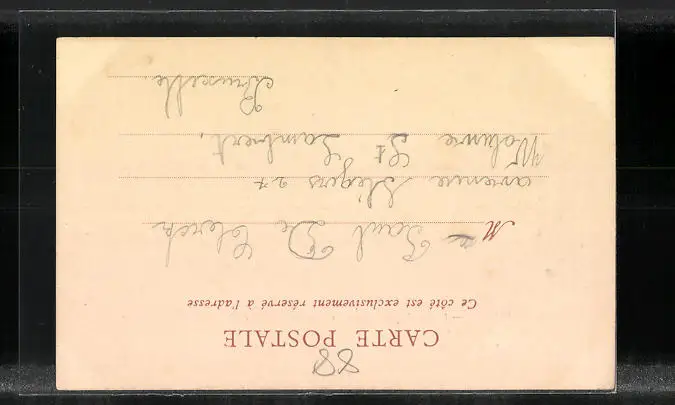 88
CARTE POSTALE
Ce côté est exclusivement réservé à l'adresse
M Paul De Clerck
avenue Slégers 27
Woluwe St Lambert,
Bruxelle